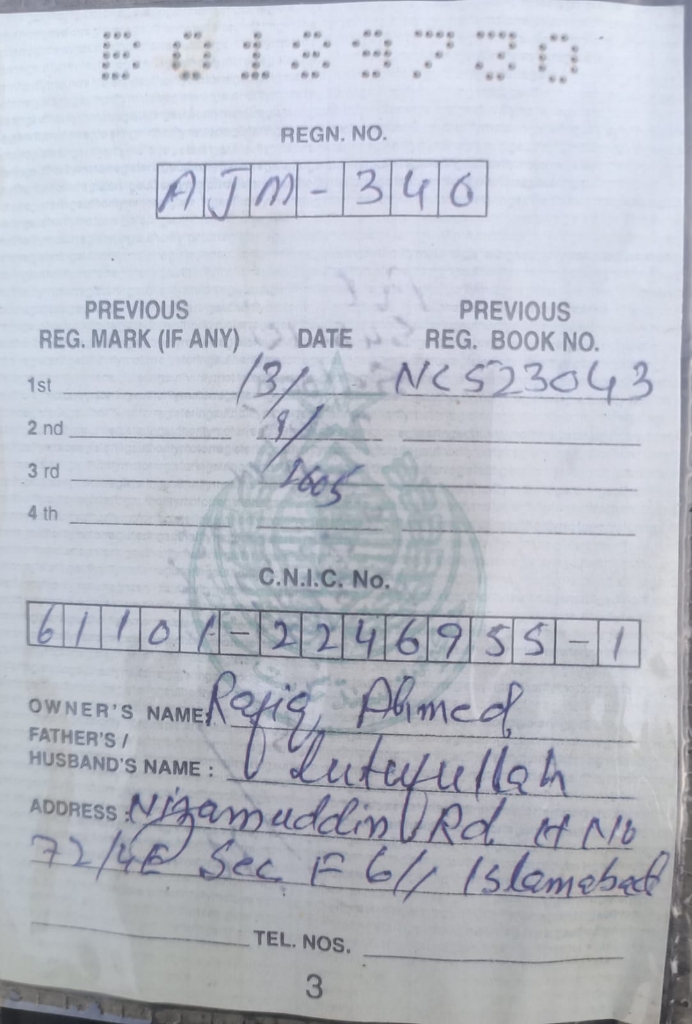 B0189730
REGN. NO.
AJM-346
PREVIOUS REG. MARK (IF ANY) DATE PREVIOUS REG. BOOK NO.
1st 13/ NC523043
2 nd 9/
3 rd 2005
4 th
C.N.I.C. No.
61101-2246955-1
OWNER'S NAME Rafiq Ahmed
FATHER'S /
HUSBAND'S NAME : Lutufullah
ADDRESS : Nizamuddin Rd H No
72/4E Sec F 6/1 Islamabad
TEL. NOS.
3